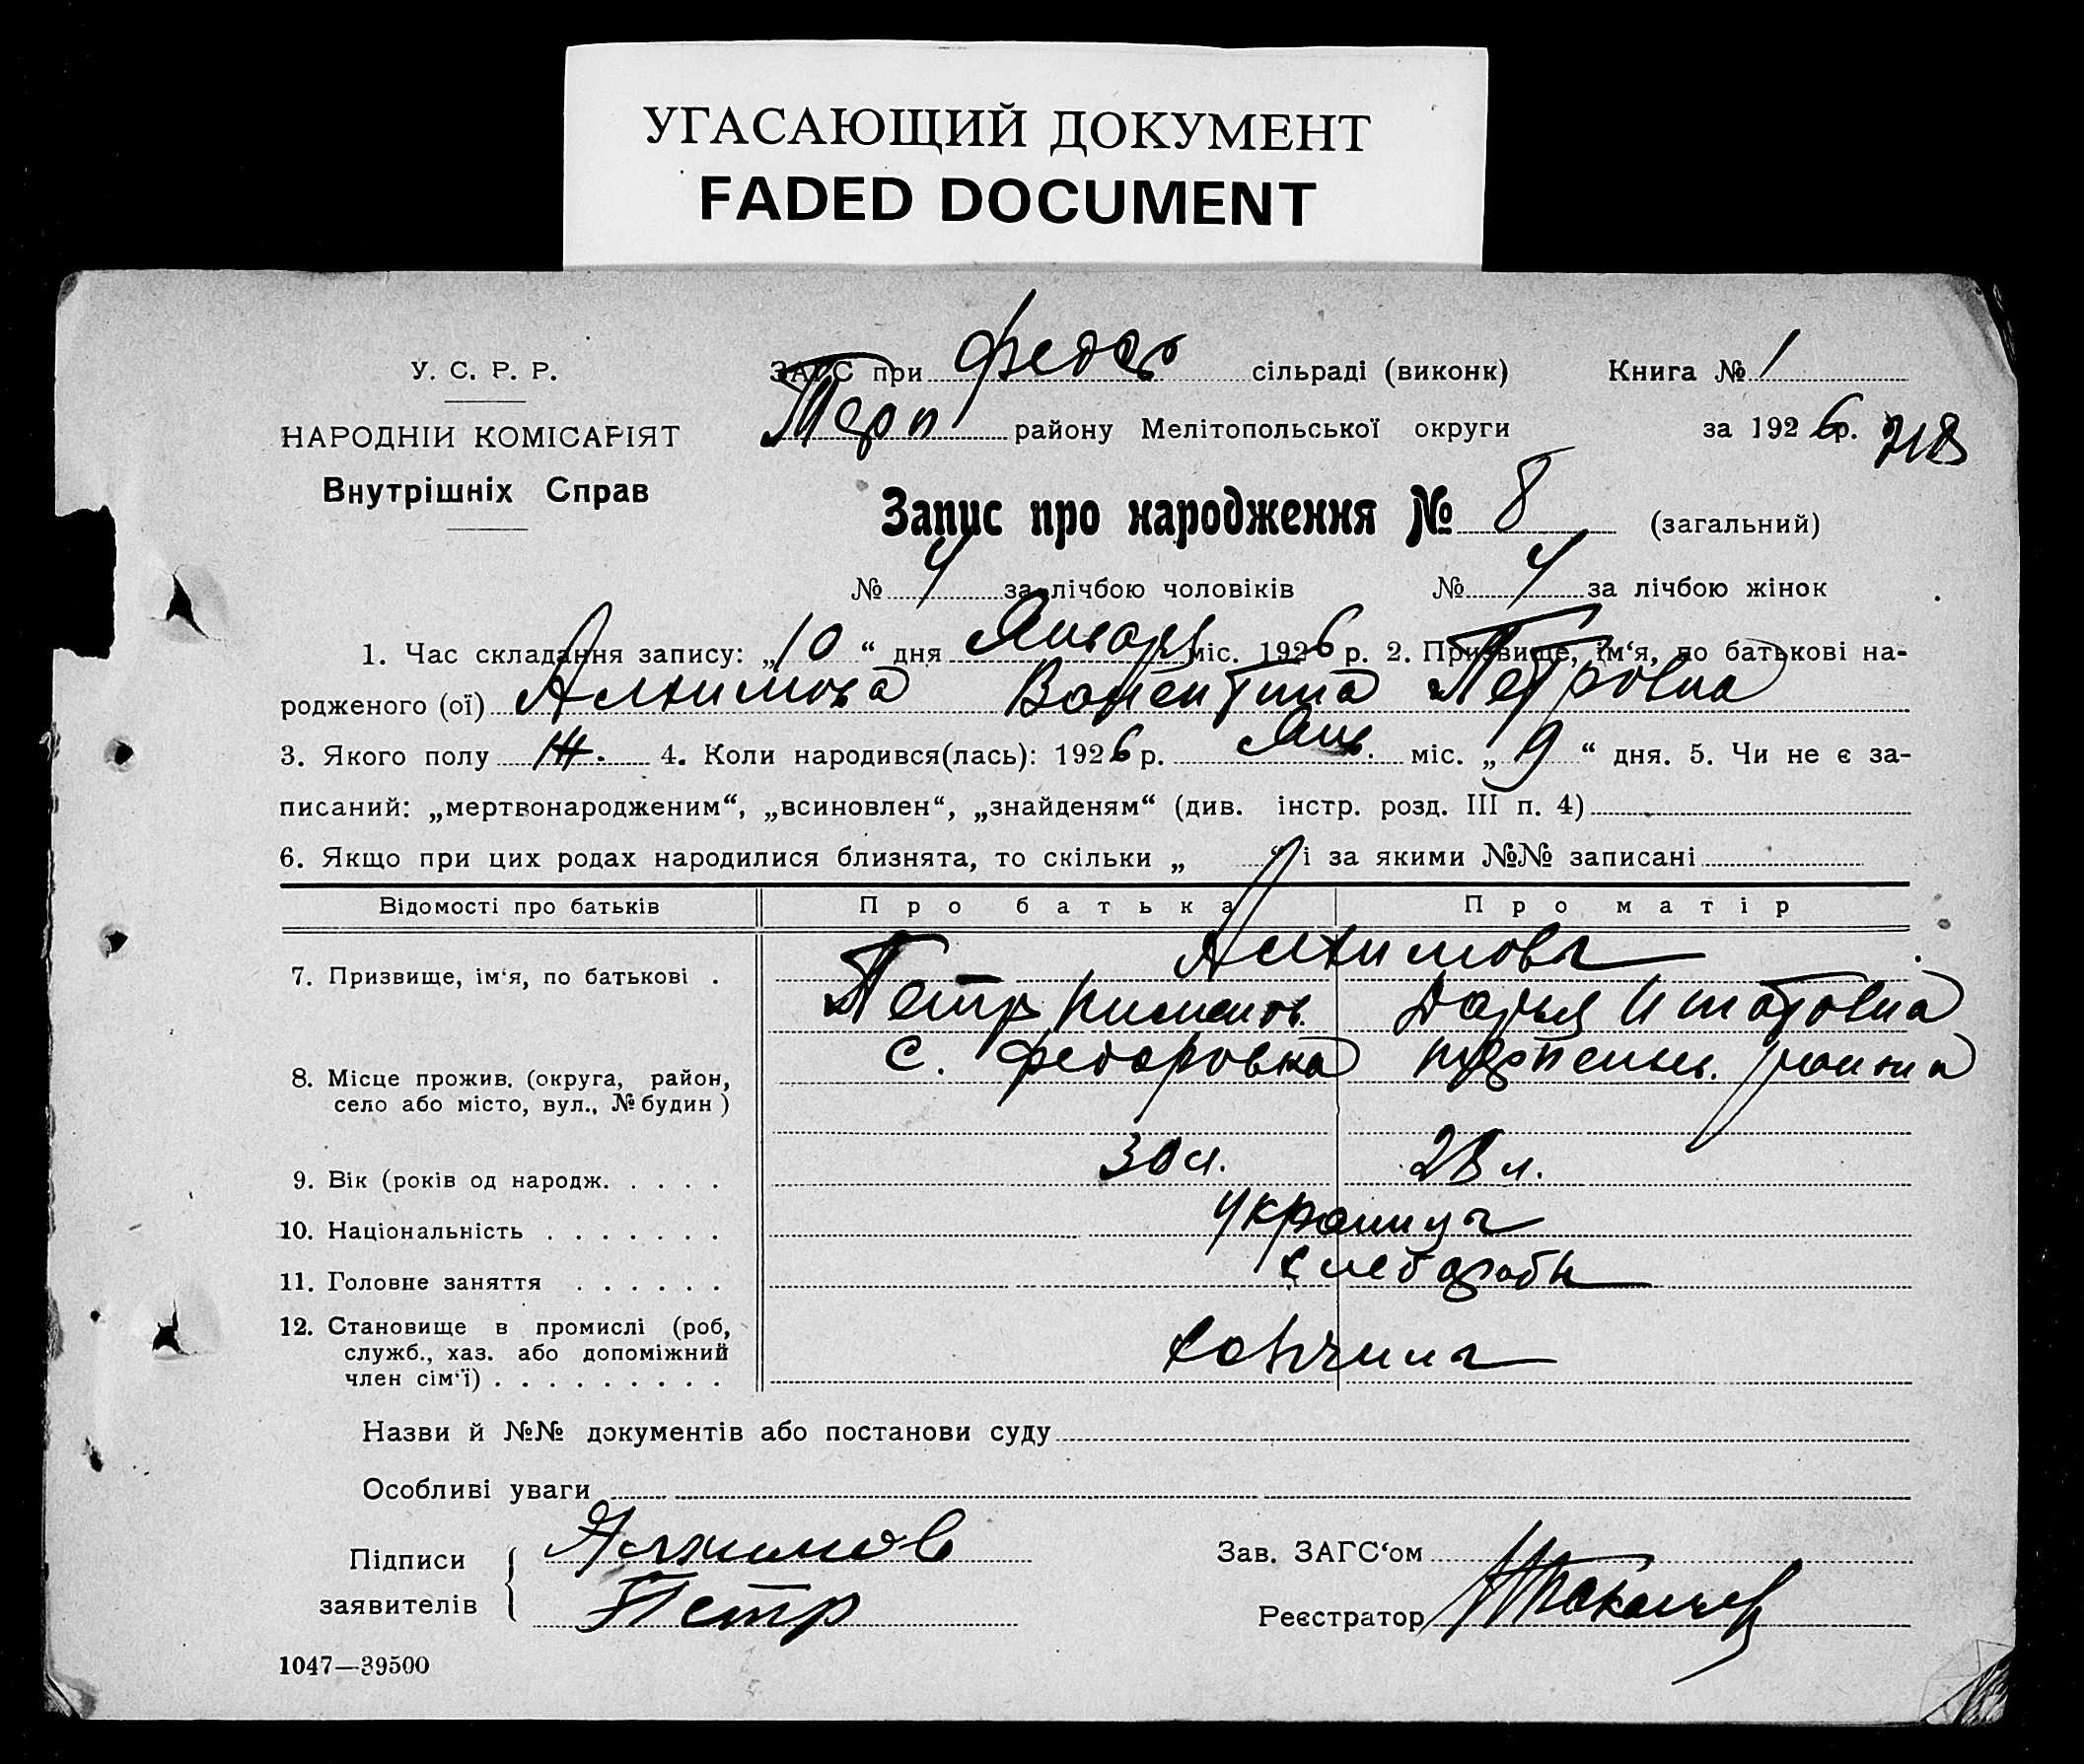 УГАСАЮЩИЙ ДОКУМЕНТ
FADED DOCUMENT
У. С. Р. Р.
НАРОДНІЙ КОМІСАРІЯТ
Внутрішніх Справ
ЗАГС при Федор сільраді (виконк) Книга № 1
Терп району Мелітопольської округи за 1926 р.
718
Запис про народження № 8 (загальний)
№ 4 за лічбою чоловіків № 4 за лічбою жінок
1. Час складання запису: „10“ дня Январь міс. 1926 р. 2. Призвище, ім‘я, по батькові на-
родженого (ої) Алхимова Валентина Петровна
3. Якого полу Ж. 4. Коли народився(лась): 1926 р. Янв. міс. „9“ дня. 5. Чи не є за-
писаний: „мертвонародженим“, „всиновлен“, „знайденям“ (див. інстр. розд. III п. 4)
6. Якщо при цих родах народилися близнята, то скільки „ “ і за якими №№ записані
Відомості про батьків Про батька Про матір
7. Призвище, ім‘я, по батькові . Алхимовы
Петр Пименов. Дарья
8. Місце прожив. (округа, район, село або місто, вул., № будин) с. Федоровка Терпеньев. района
9. Вік (років од народж. . . . . 30 л. 28 л.
10. Національність . . . . . . . Украинцы
11. Головне заняття . . . . . . хлеборобы
12. Становище в промислі (роб,
служб., хаз. або допоміжний
член сім‘ї) . . . . . . . . .
Назви й №№ документів або постанови суду
Особливі уваги
Підписи заявителів { Алхимов
Петр
Зав. ЗАГС‘ом
Реєстратор
1047—39500